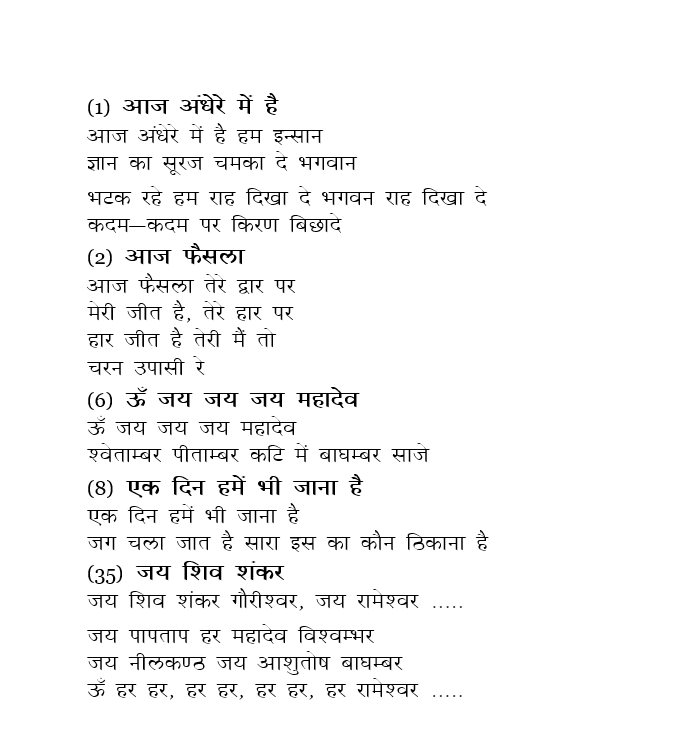 (1) आज अंधेरे में है
आज अंधेरे में है हम इन्सान
ज्ञान का सूरज चमका दे भगवान
भटक रहे हम राह दिखा दे भगवन राह दिखा दे
कदम—कदम पर किरण बिछादे
(2) आज फैसला
आज फैसला तेरे द्वार पर
मेरी जीत है, तेरे हार पर
हार जीत है तेरी मैं तो
चरन उपासी रे
(6) ऊँ जय जय जय महादेव
ऊँ जय जय जय महादेव
श्वेताम्बर पीताम्बर कटि में बाघम्बर साजे
(8) एक दिन हमें भी जाना है
एक दिन हमें भी जाना है
जग चला जात है सारा इस का कौन ठिकाना है
(35) जय शिव शंकर
जय शिव शंकर गौरीश्वर, जय रामेश्वर .....
जय पापताप हर महादेव विश्वम्भर
जय नीलकण्ठ जय आशुतोष बाघम्बर
ऊँ हर हर, हर हर, हर हर, हर रामेश्वर .....